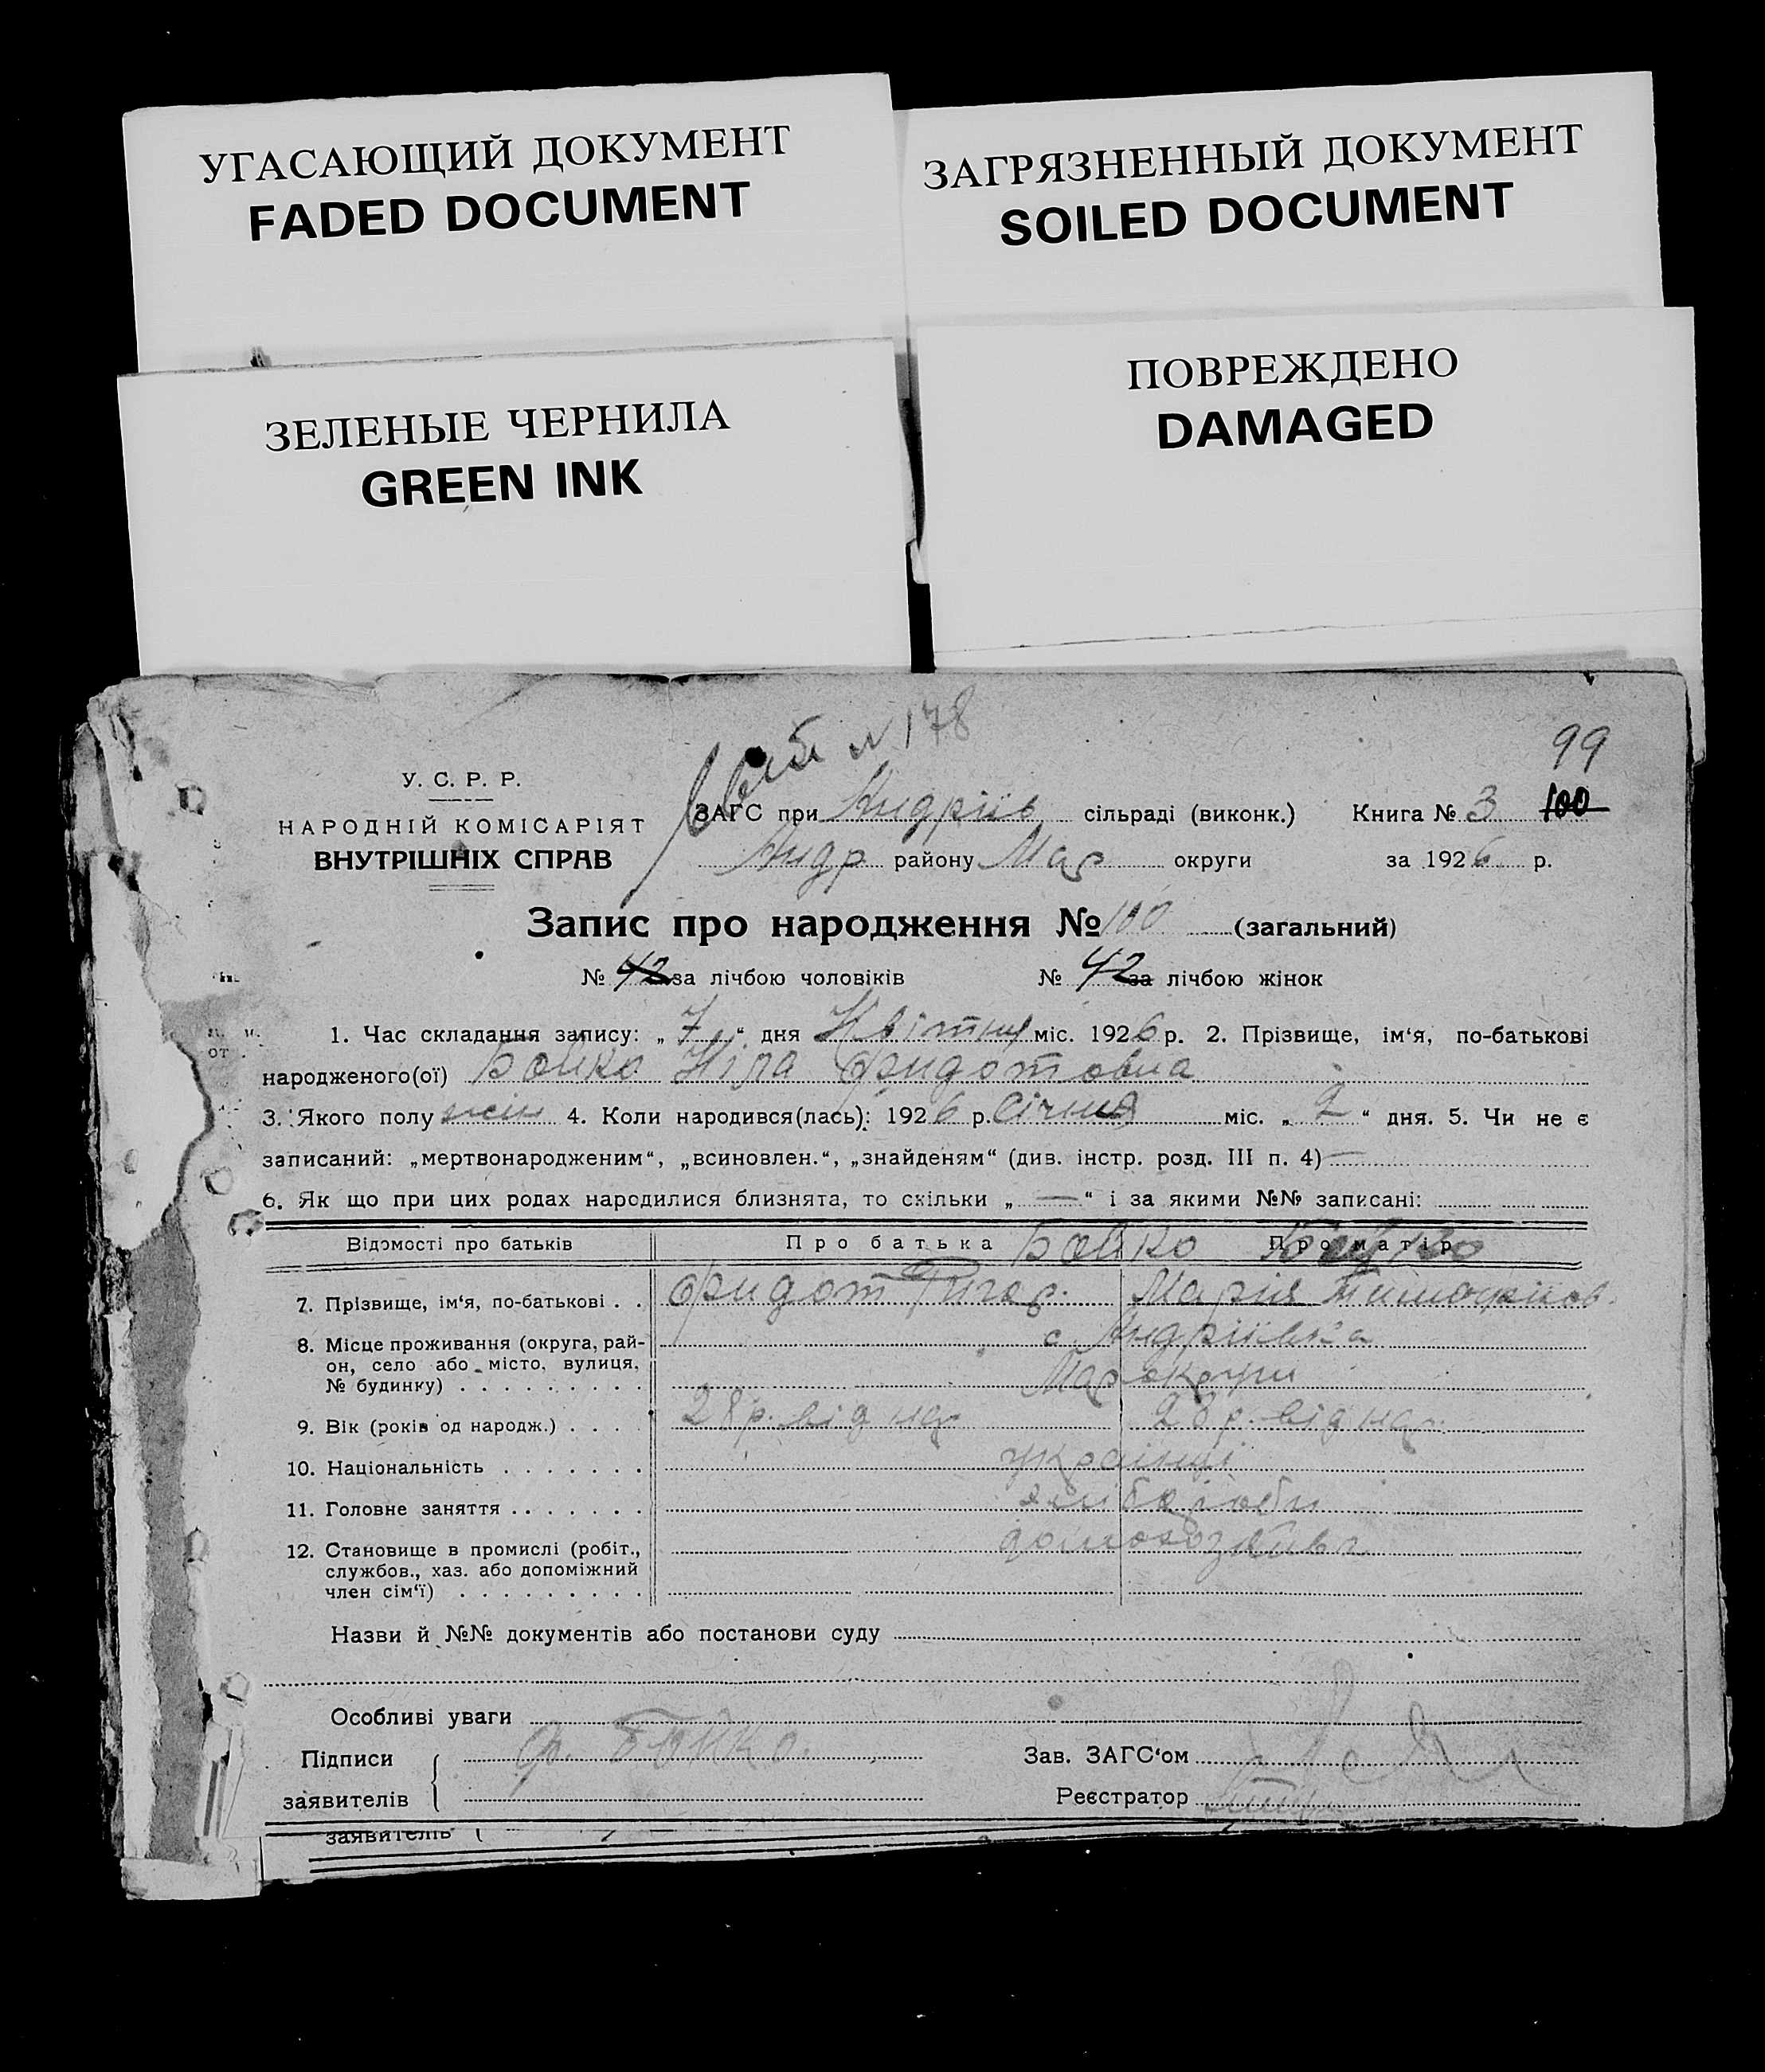 УГАСАЮЩИЙ ДОКУМЕНТ
FADED DOCUMENT
ЗАГРЯЗНЕННЫЙ ДОКУМЕНТ
SOILED DOCUMENT
ЗЕЛЕНЫЕ ЧЕРНИЛА
GREEN INK
ПОВРЕЖДЕНО
DAMAGED
N 178
99
У. С. Р. Р.
НАРОДНІЙ КОМІСАРІЯТ
ВНУТРІШНІХ СПРАВ
ЗАГС при Андріїв сільраді (виконк.) Книга № 3 100
Андр району Мар округи за 1926 р.
Запис про народження № 100 (загальний)
№ 42 за лічбою чоловіків № 42 за лічбою жінок
1. Час складання запису: „7“ дня Квітня міс. 1926 р. 2. Прізвище, ім‘я, по-батькові
народженого(ої) Бойко Ніла Фидотовна
3. Якого полу жін 4. Коли народився(лась): 1926 р. Січня міс. „2“ дня. 5. Чи не є
записаний: „мертвонародженим“, „всиновлен.“, „знайденям“ (див. інстр. розд. III п. 4) —
6. Як що при цих родах народилися близнята, то скільки „—“ і за якими №№ записані:
Відомості про батьків Про батька Бойко Про матір
7. Прізвище, ім‘я, по-батькові . . Фидот Григор. Марія Тимофіїов.
8. Місце проживання (округа, рай- с. Андріївка
он, село або місто, вулиця,
№ будинку) . . . . . . . . . Мар округи
9. Вік (років од народж.) . . . . 28 р. від нар. 28 р. від нар.
10. Національність . . . . . . . українці
11. Головне заняття . . . . . . . хлибороби
12. Становище в промислі (робіт., домохозяїва
службов., хаз. або допоміжний
член сім‘ї) . . . . . . . . .
Назви й №№ документів або постанови суду
Особливі уваги
Підписи Ф. Бойко. Зав. ЗАГС‘ом
заявителів Реєстратор
заявителів